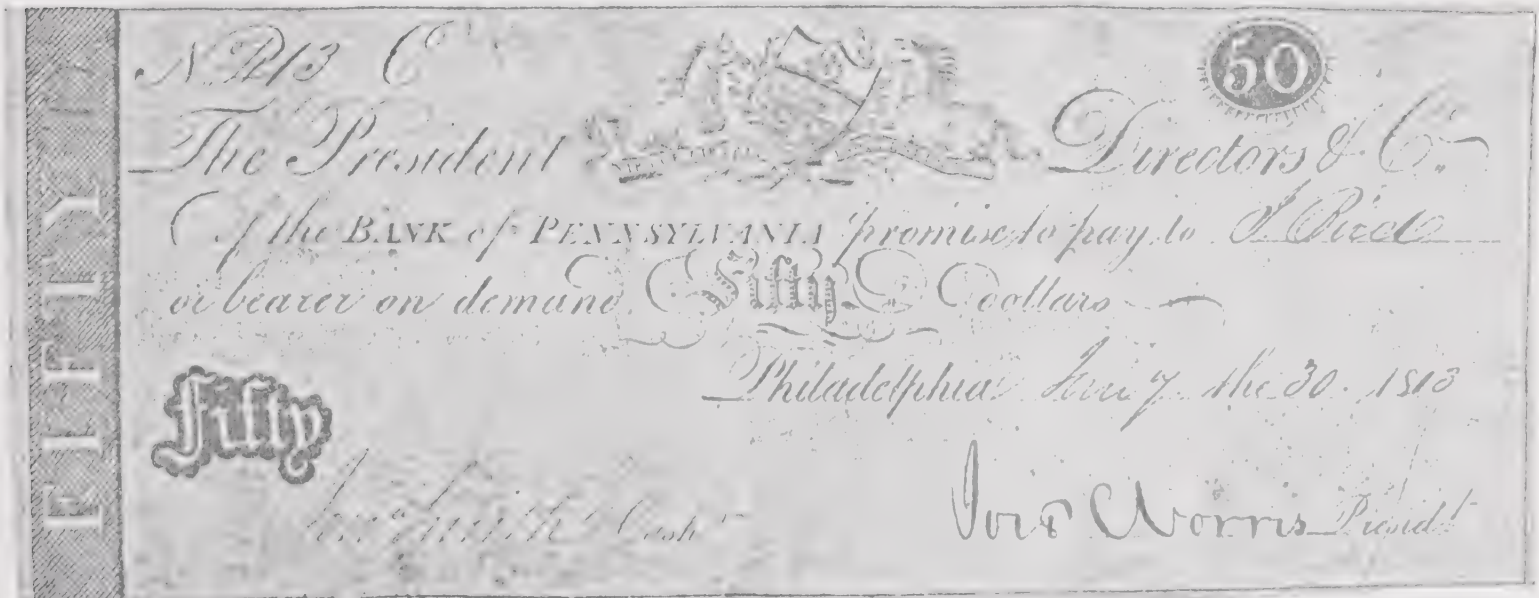 FIFTY
No 1213 C
50
The President Directors & Co.
Of the BANK of PENNSYLVANIA promise to pay to
or bearer on demand Fifty dollars
Philadelphia the 30. 1813
Fifty
Cash
Morris Presidt